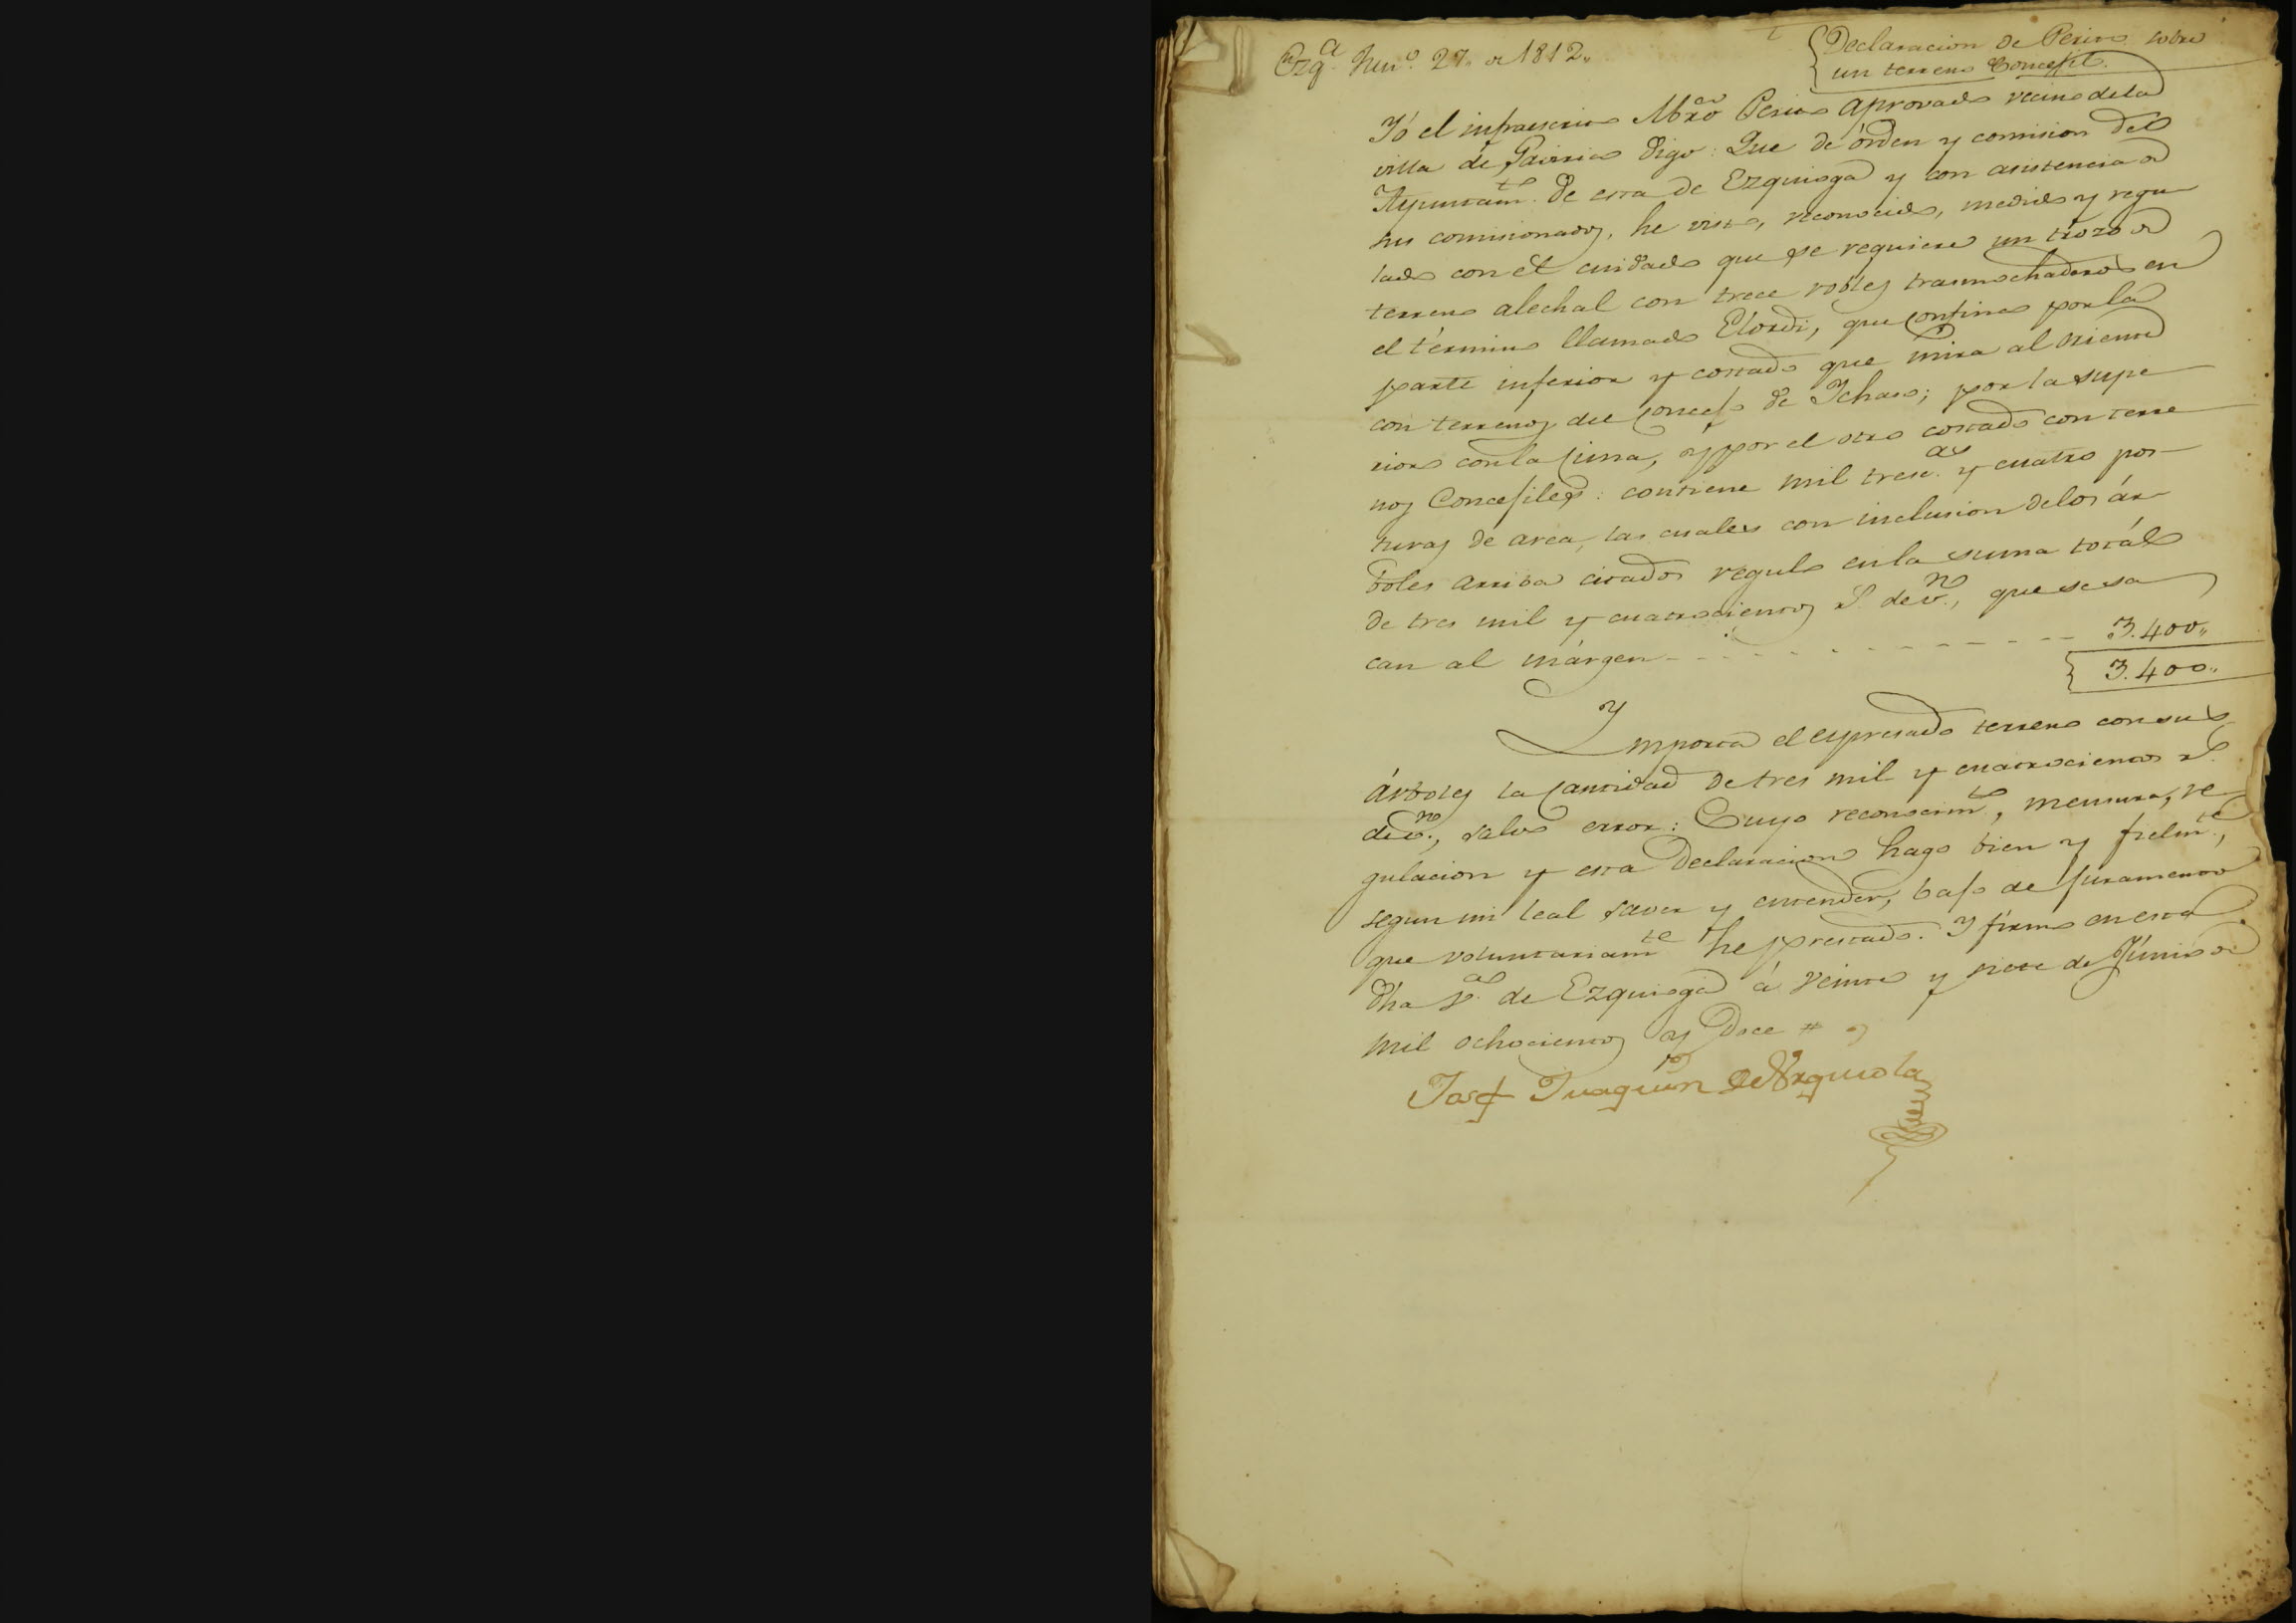 Ezqª. Jun.º 27 de 1812.
Declaracion de Perito sobre
un terreno Concejil.
Yó el infraescrito Mtro Perito aprovado vecino de la
villa de Gaviria digo: Que de órden y comision del
Ayuntam.to de esta de Ezquioga y con asistencia de
sus comisionados, he visto, reconocido, medido y regu
lado con él cuidado que se requiere un trozo de
terreno alechal con trece robles trasmochaderos en
el término llamado Elordi, que confina por la
parte inferior y costado que mira al oriente
con terrenos del Concejo de Ichaso; por la supe
rior con la cima, y por el otro costado con terre
nos Concejiles: contiene mil tresc.as y cuatro pos
turas de area, las cuales con inclusion de los ár
boles arriba citados regulo en la suma totál
de tres mil y cuatrocientos r.s de v.n, que se sa
can al márgen - - - - - - - - - - 3.400,,
3.400,,
Ymporta el espresado terreno con sus
árboles la cantidad de tres mil y cuatrocientos r.s
de v.n, salvo error: Cuyo reconocim.to, mensura, re
gulacion y esta Declaracion hago bien y fielm.te,
segun mi leal saver y entender, bajo de juramento
que voluntariam.te he prestado. Y firmo en esta
dha v.ª de Ezquioga á veinte y siete de Junio de
mil ochocientos y Doce #
Josef Juaquin de Urguiola